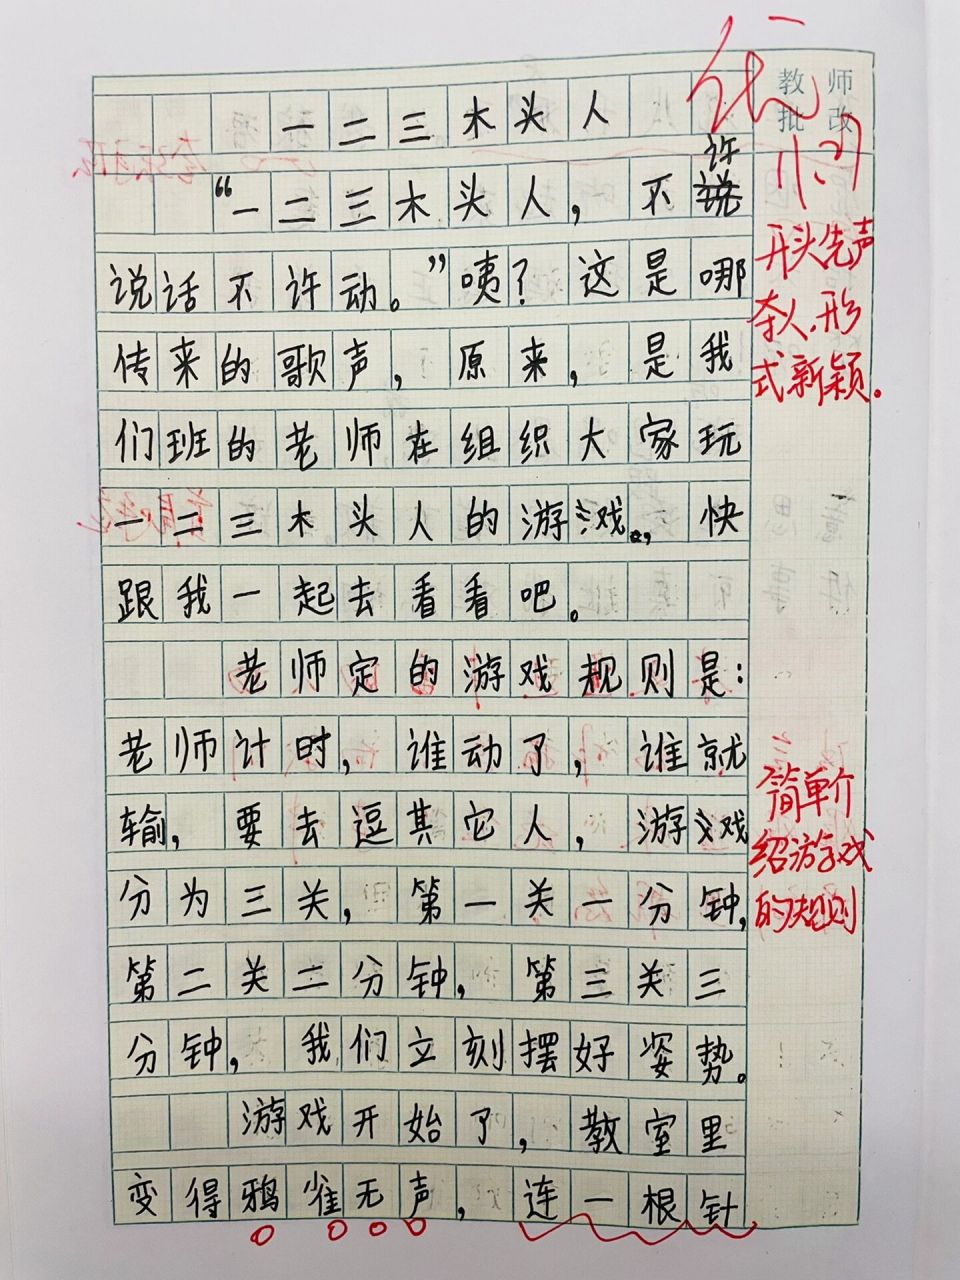 教师
批改
优
11.27
一二三木头人
许
“一二三木头人，不说
说话不许动。”咦？这是哪
传来的歌声，原来，是我
们班的老师在组织大家玩
一二三木头人的游戏。，快
跟我一起去看看吧。
老师定的游戏规则是：
老师计时，谁动了，谁就
输，要去逗其它人，游戏
分为三关，第一关一分钟，
第二关二分钟，第三关三
分钟，我们立刻摆好姿势。
游戏开始了，教室里
变得鸦雀无声，连一根针
开头先声
夺人，形
式新颖。
简单介
绍游戏
的规则